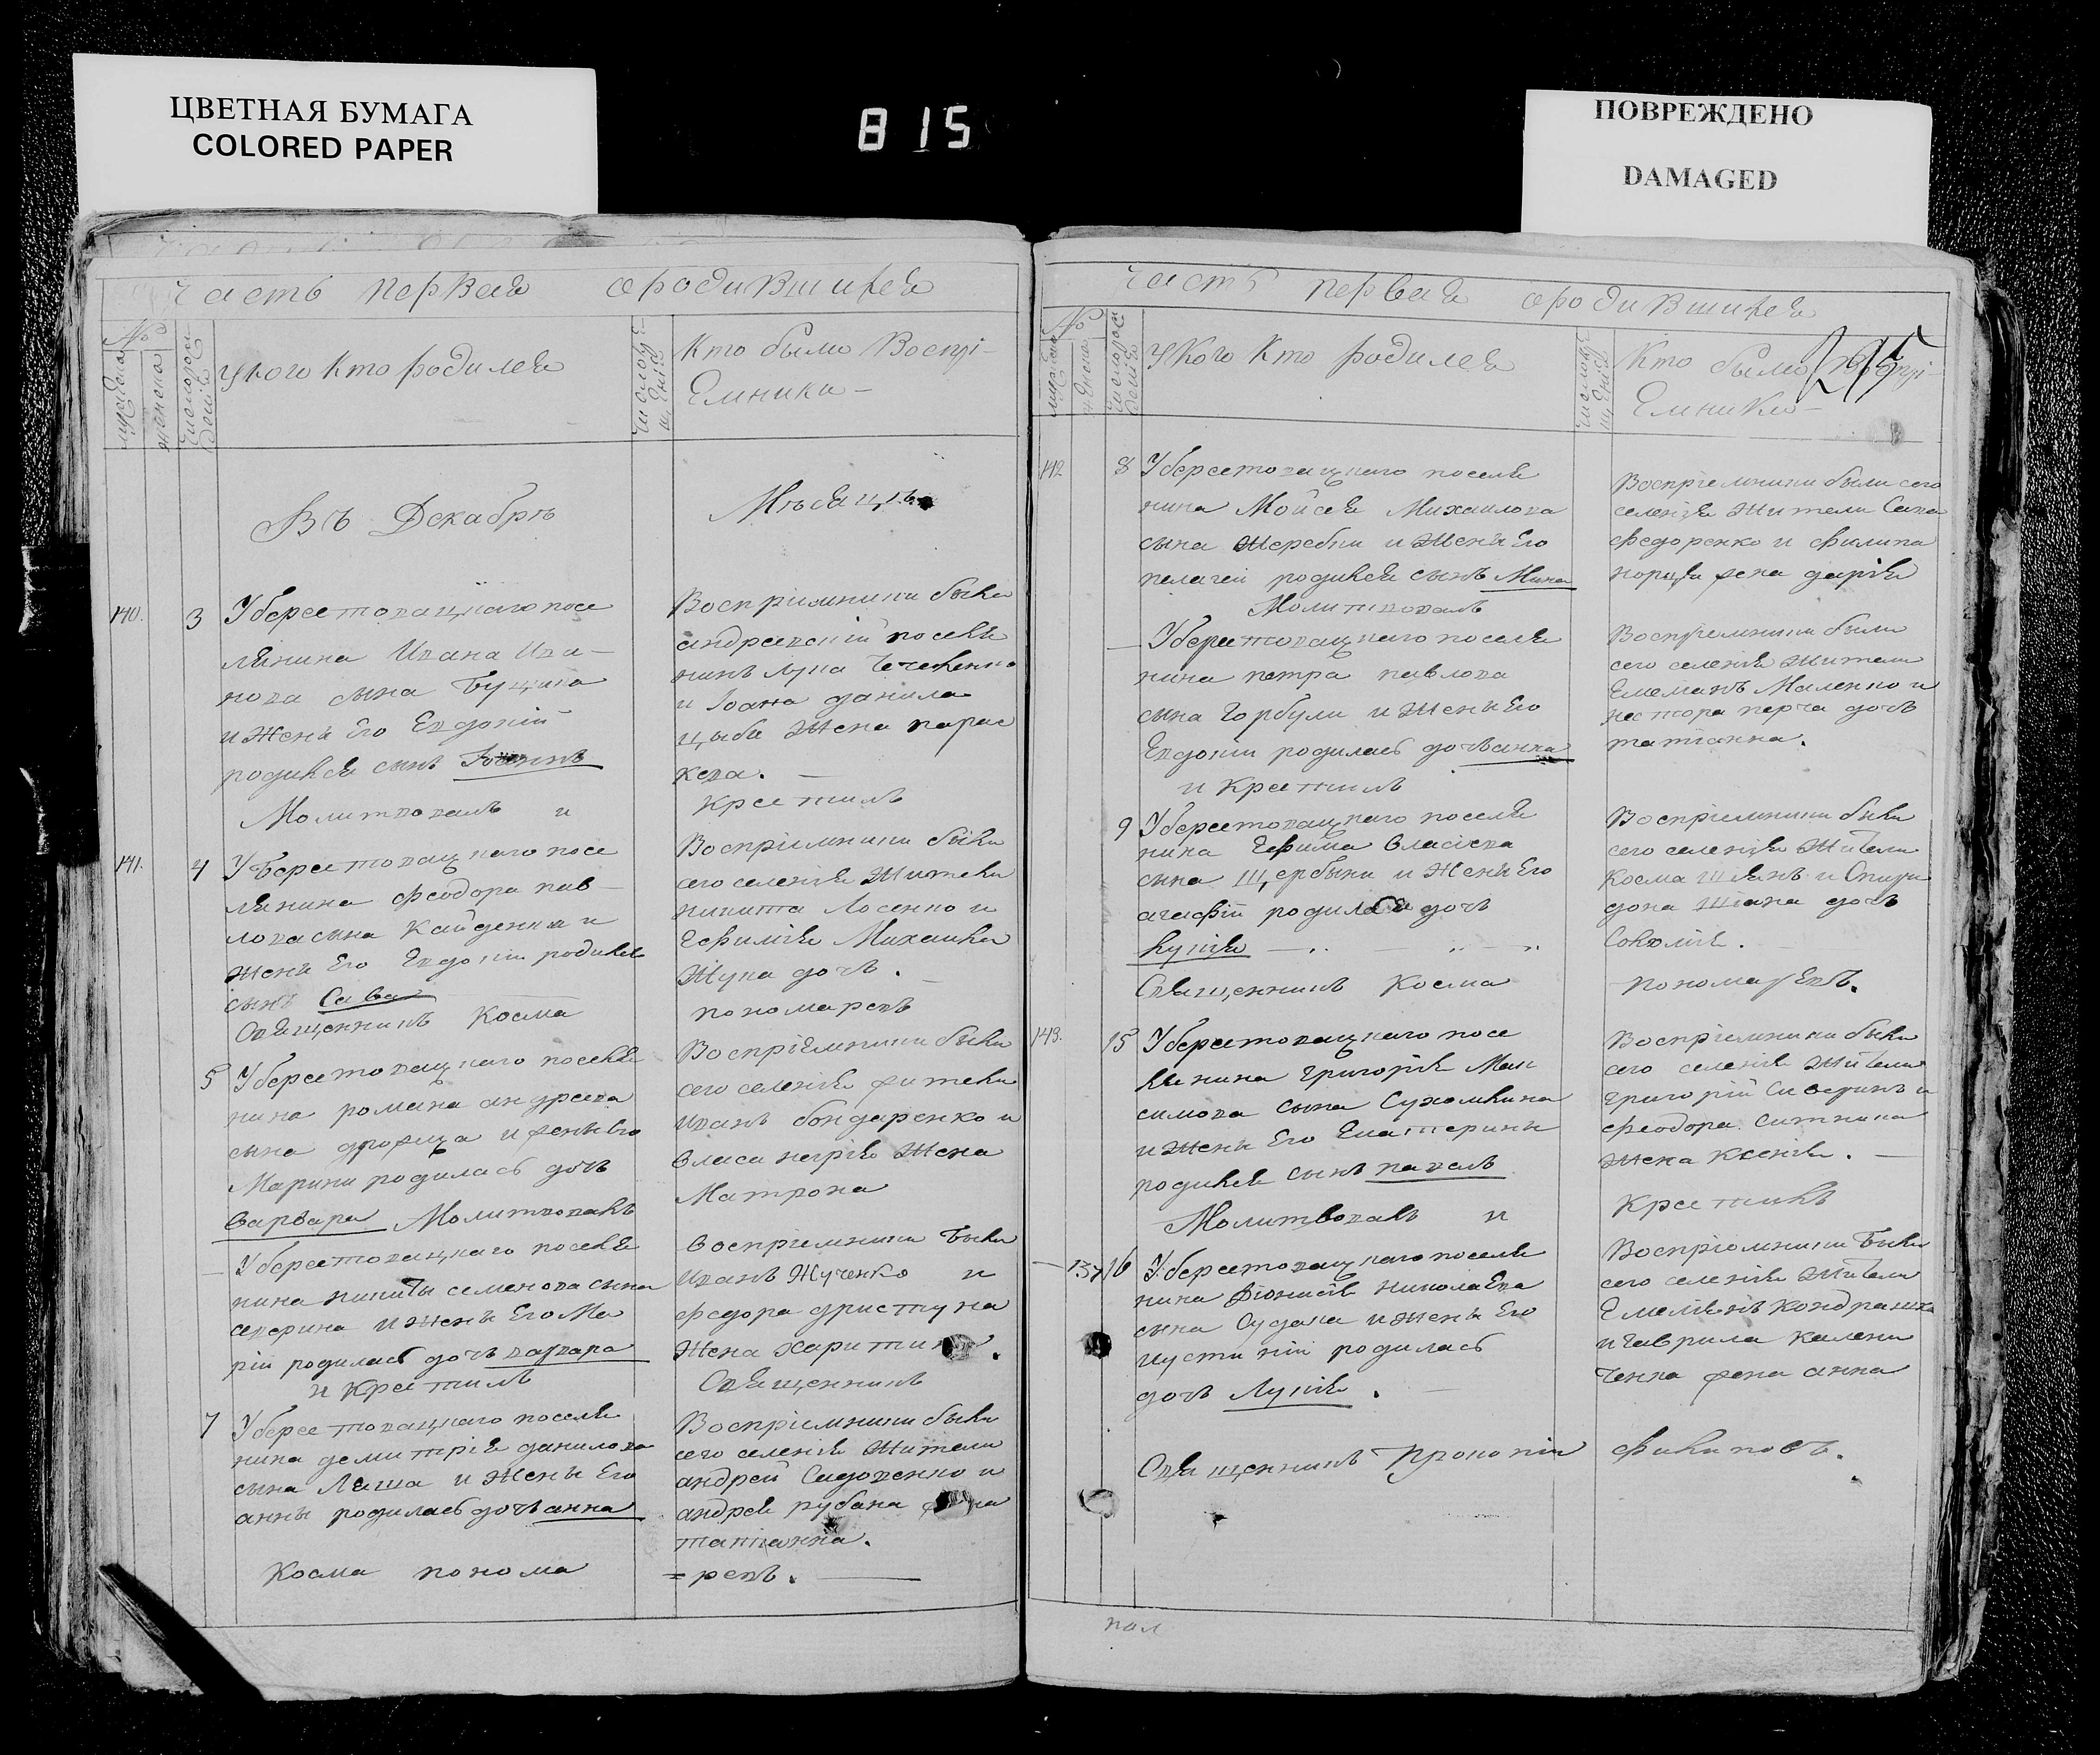 ЦВЕТНАЯ БУМАГА
COLORED PAPER
815
ПОВРЕЖДЕНО
DAMAGED
Часть первая о родившихся
№
мужеска
женска
Число рож
дения
У кого кто родился
Число кре
щения
Кто были Воспрі-
Емники –
Въ Декабрѣ
Мѣсяцѣ
140.
3
У берестовацкаго посе
лянина Ивана Ива-
нова сына
и жены Его Евдокіи
родился сынъ
Молитвовалъ и
Воспріемники были
андреевскій поселя
нинъ лука
и Іоана данила
цыби жена парас
кева. –
крестилъ
141.
4
У берестовацкаго посе
лянина феодора пав-
лова сына Кайденка и
жены Его Евдокіи родился
сынъ Сава
Священникъ Косма
Воспріемники были
сего селенія жители
никита Лосенко и
Ефимія Михаила
жука дочь.
пономаревъ
5
У берестовацкаго поселя
нина романа андреева
сына и жены Его
Марини родилась дочь
варвара Молитвовалъ
Воспріемники были
сего селенія жители
иванъ бондаренко и
власа негрія жена
Матрона
–
У берестовацкаго поселя
нина никиты семенова сына
северина и жены Его Ма
ріи родилась дочь варвара
и крестилъ
воспріемники были
иванъ Жученко и
федора дристуна
жена харитина.
Священникъ
7
У берестовацкаго поселя
нина демитрія данилова
сына Ляша и жены Его
анны родилась дочь анна
Косма понома
Воспріемники были
сего селенія жители
андрей Сидоренко и
андрея рубана жена
татіанна.
=ревъ.
Часть первая о родившихся
295
№
мужеска
женска
Число рож
дения
У кого кто родился
Число кре
щения
Кто были Воспрі-
Емники –
142
8
У берестовацкаго поселя
нина Мойсея Михаилова
сына жеребки и жены Его
пелагеи родился сынъ Мина
Молитвовалъ
Воспріемники были сего
селенія жители Сава
федоренко и филипа
жена дарія
–
У берестовацкаго поселя
нина петра павлова
сына Горбули и жены Его
Евдокіи родилась дочь анна
и крестилъ
Воспріемники были
сего селенія жители
Емеланъ Маленко и
нестора перча дочь
татіанна.
9
У берестовацкаго поселя
нина Ефима власіева
сына щербыни и жены Его
агафіи родилася дочь
лукія
Священникъ Косма
Воспріемники были
сего селенія жители
Косма шіянъ и Спири
дона шіана дочь
пономаревъ.
143.
15
У берестовацкаго посе
лянина григорія Мак
симова сына Сухомлина
и жены Его Екатерины
родился сынъ павелъ
Молитвовалъ и
Воспріемники были
сего селенія жители
григорій Сиверинъ и
феодора Ситника
жена Ксенія. –
крестилъ
–
137
16
У берестовацкаго поселя
нина Діонисія николаева
сына Судака и жены Его
иустиніи родилась
дочь Лукія.
Священникъ Прокопій
Воспріемники были
сего селенія жители
Емеліянъ Кондрашка
и гаврила калени
ченка жена анна
филиповъ.
пол